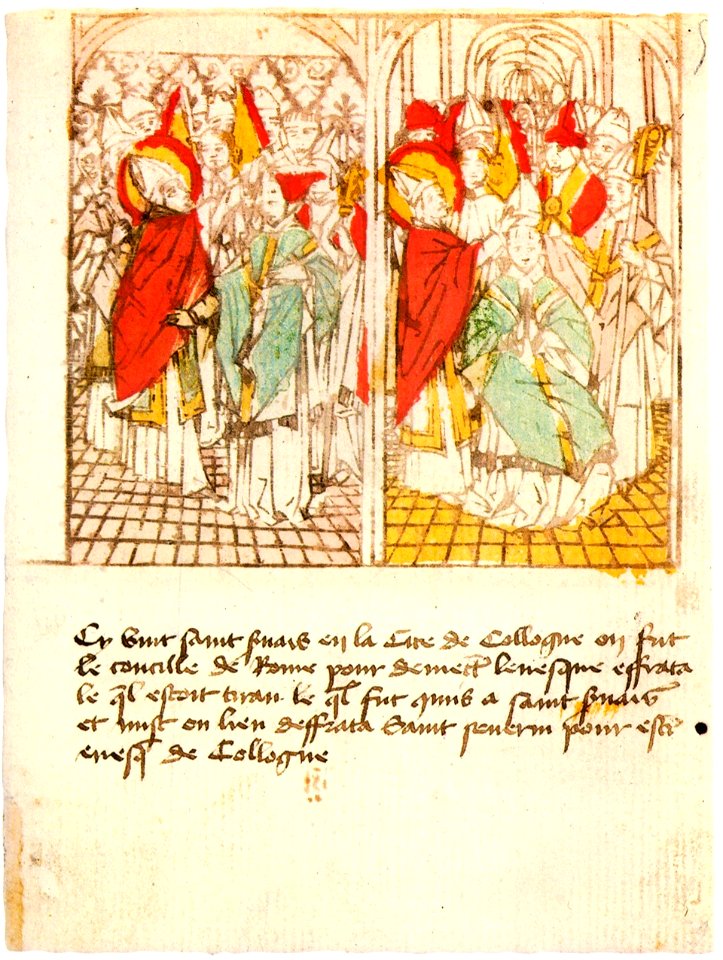 Cy vint saint s̃vais en la Cite de Collogne ou fut
le concille de Rome pour demect̃ levesque effrata
le q̃l estoit tiran le q̃l fut qmis a saint s̃vais
et mist ou lieu deffrata Saint severin pour estr̃
evesq̃ de Collogne